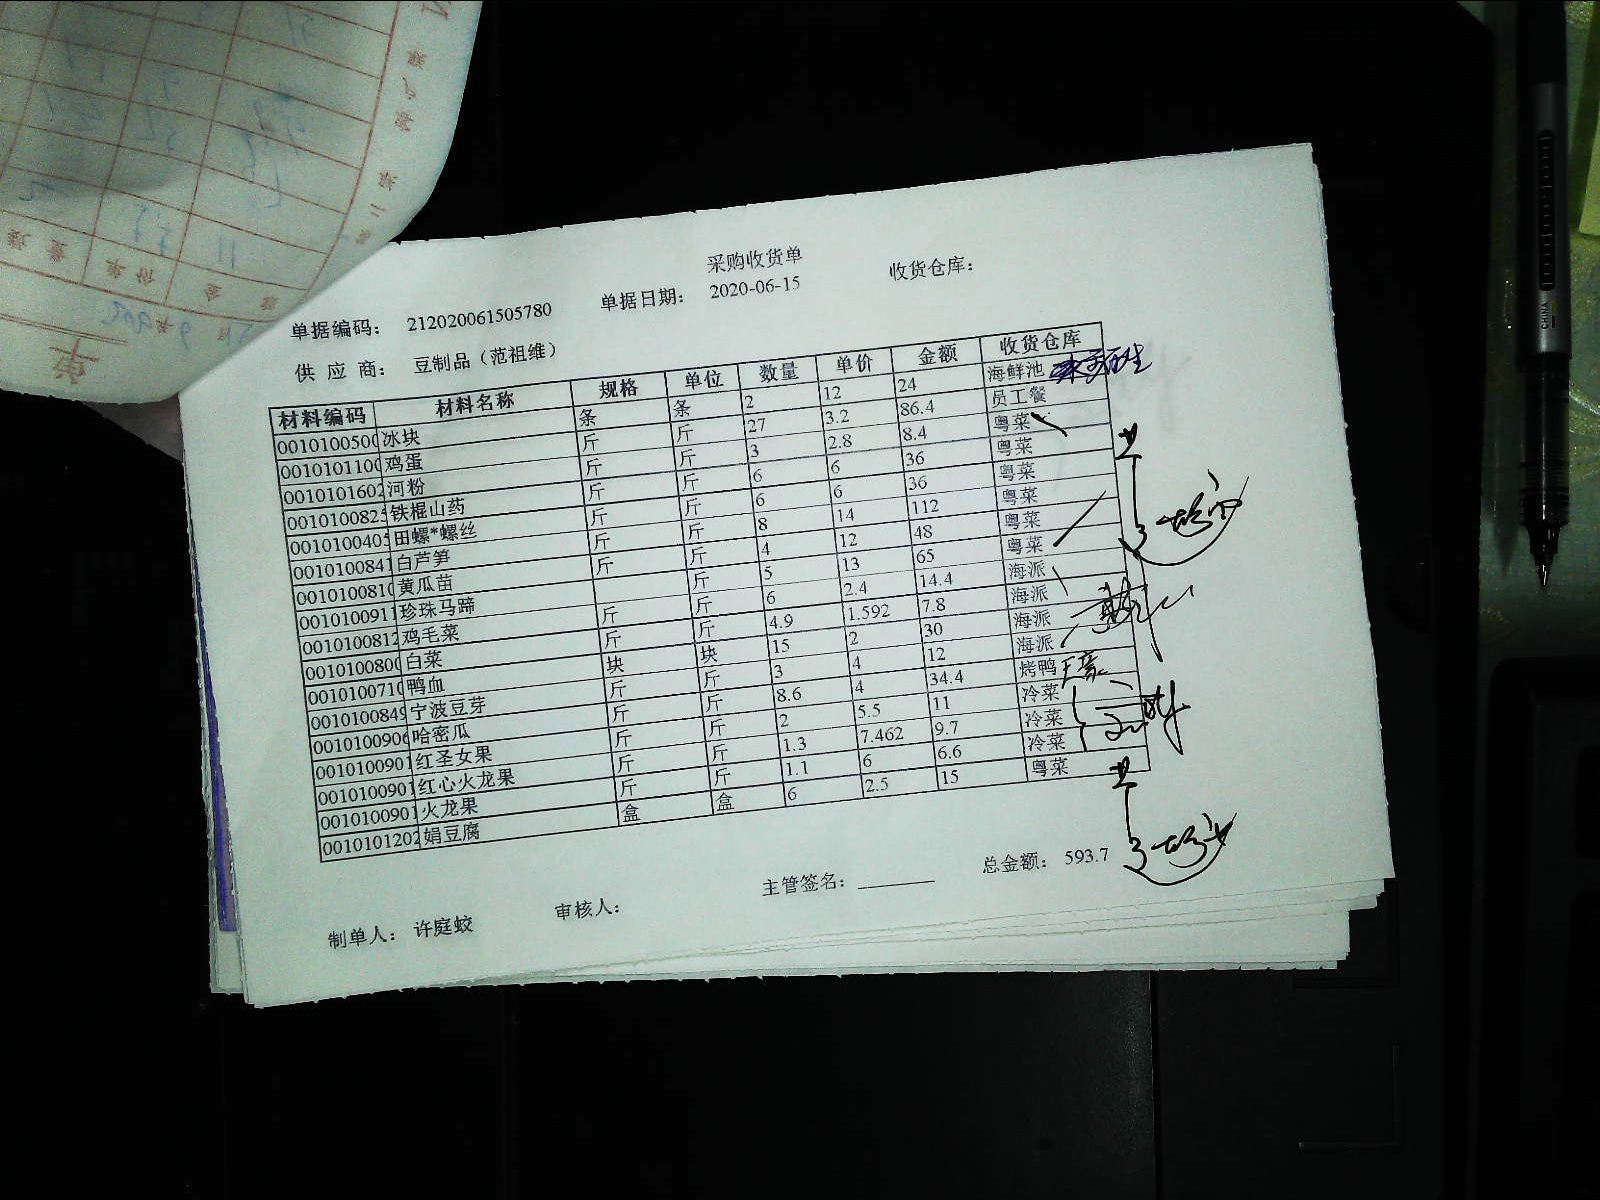 采购收货单
单据编码： 212020061505780 单据日期： 2020-06-15 收货仓库：
供 应 商： 豆制品（范祖维）
材料编码 材料名称 规格 单位 数量 单价 金额 收货仓库
0010100500 冰块 条 条 2 12 24 海鲜池
0010101100 鸡蛋 斤 斤 27 3.2 86.4 员工餐
0010101602 河粉 斤 斤 3 2.8 8.4 粤菜
0010100825 铁棍山药 斤 斤 6 6 36 粤菜
0010100405 田螺*螺丝 斤 斤 6 6 36 粤菜
0010100841 白芦笋 斤 斤 8 14 112 粤菜
0010100810 黄瓜苗 斤 斤 4 12 48 粤菜
0010100911 珍珠马蹄 斤 5 13 65 粤菜
0010100812 鸡毛菜 斤 斤 6 2.4 14.4 海派
0010100800 白菜 斤 斤 4.9 1.592 7.8 海派
0010100710 鸭血 块 块 15 2 30 海派
0010100849 宁波豆芽 斤 斤 3 4 12 海派
0010100906 哈密瓜 斤 斤 8.6 4 34.4 烤鸭
0010100901 红圣女果 斤 斤 2 5.5 11 冷菜
0010100901 红心火龙果 斤 斤 1.3 7.462 9.7 冷菜
0010100901 火龙果 斤 斤 1.1 6 6.6 冷菜
0010101202 娟豆腐 盒 盒 6 2.5 15 粤菜
制单人： 许庭蛟 审核人： 主管签名： 总金额： 593.7